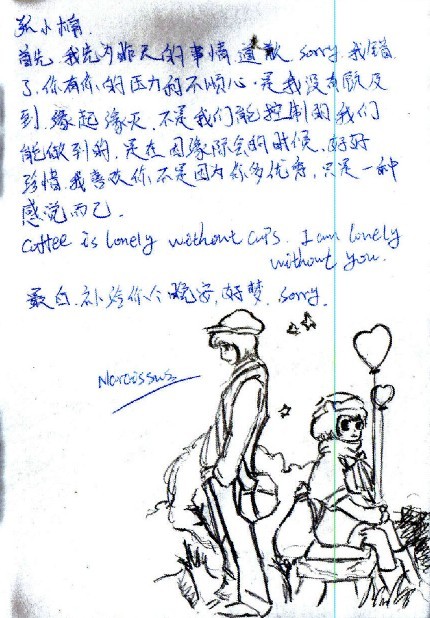 小楠.
首先,我先为昨天的事情,道歉,sorry.我错
了.你有你的压力和不顺心.是我没有顾及
到.缘起缘灭.不是我们能控制的我们
能做到的.是在因缘际会的时候,好好
珍惜.我喜欢你不是因为你多优秀,只是一种
感觉而已.
Coffee is lonely without cups. I am lonely
without you.
最后.补给你个晚安,好梦. sorry.
Narcissus